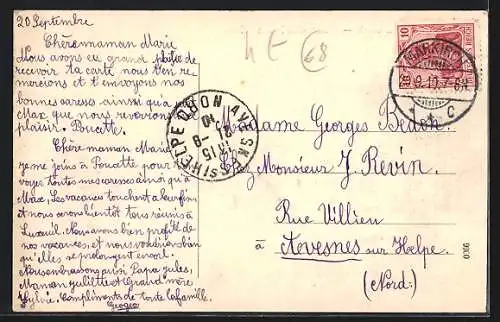 20 Septembre
Chère maman Marie
Nous avons eu grand plaisir de
recevoir ta carte nous t'en re-
mercions et t'envoyons nos
bonnes caresses ainsi qu'à
Max que nous reverrons
plaisir. Poucette
Chère maman Marie
je me joins à Poucette pour
voyer toutes mes caresses ainsi qu'à
Max. Les vacances touchent à leur fin
et nous serons bientôt tous réunis à
Luxeuil. Nous avons bien profité de
nos vacances, et nous voudrions bien
qu'elles se prolongent encore.
Nous embrassons aussi Papa Jules,
Maman Juliette et Grand'mère
Sylvie. Compliments de toute la famille.
Georges
68
10
REICH
MARKIRCH
9.10.7-8N
C
AVESNES-SUR-HELPE NORD
Madame Georges
Chez Monsieur J. Revin.
Rue Villien
à Avesnes sur Helpe
(Nord)